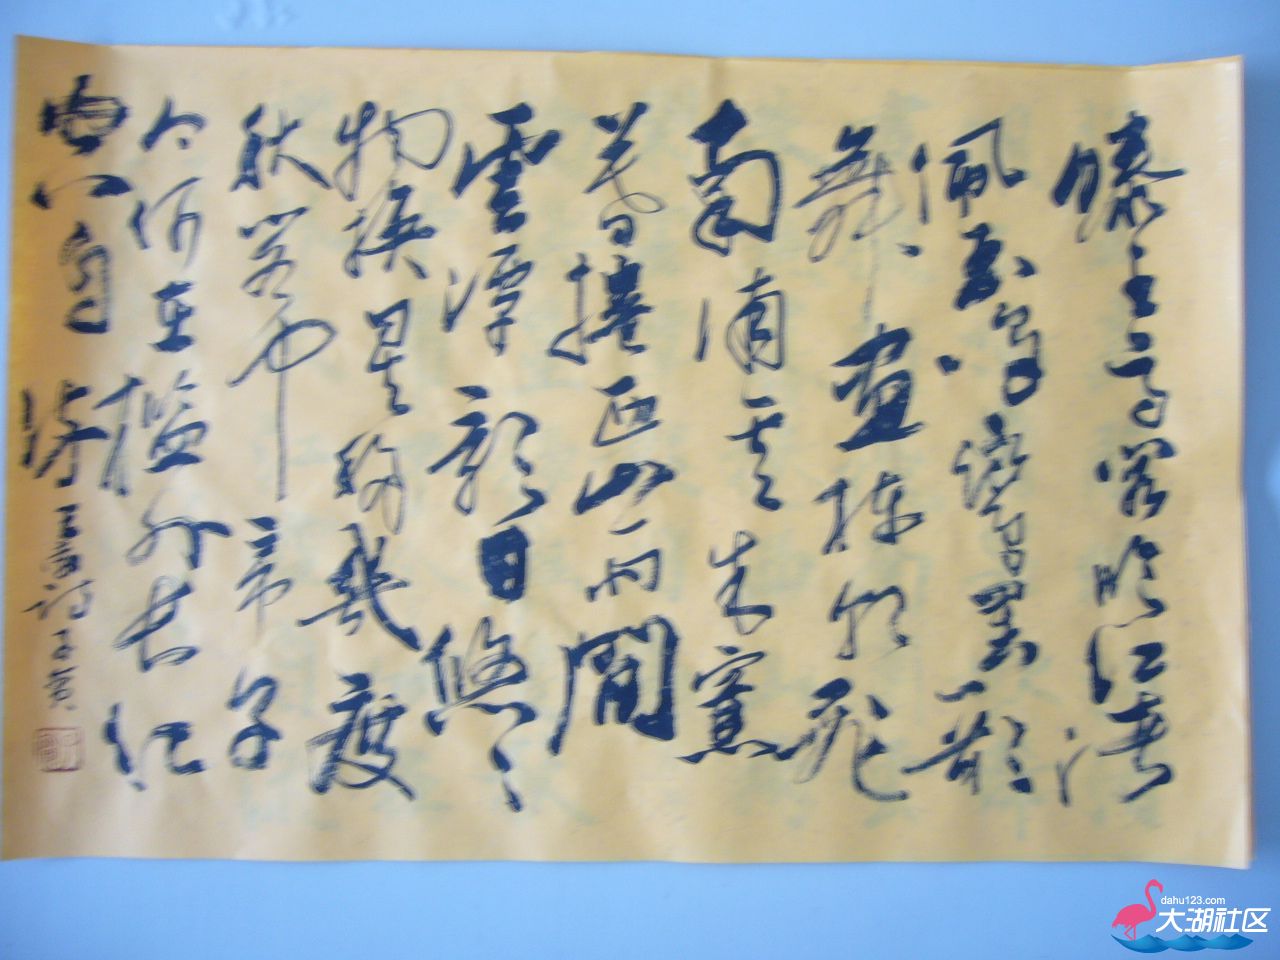 滕王高阁临江渚
佩玉鸣鸾罢歌
舞画栋朝飞
南浦云朱帘
暮捲西山雨間
雲潭影日悠々
物换星移幾度
秋阁中帝子
今何在槛外长江
空自流 王勃诗
大湖社区
dahu123.com